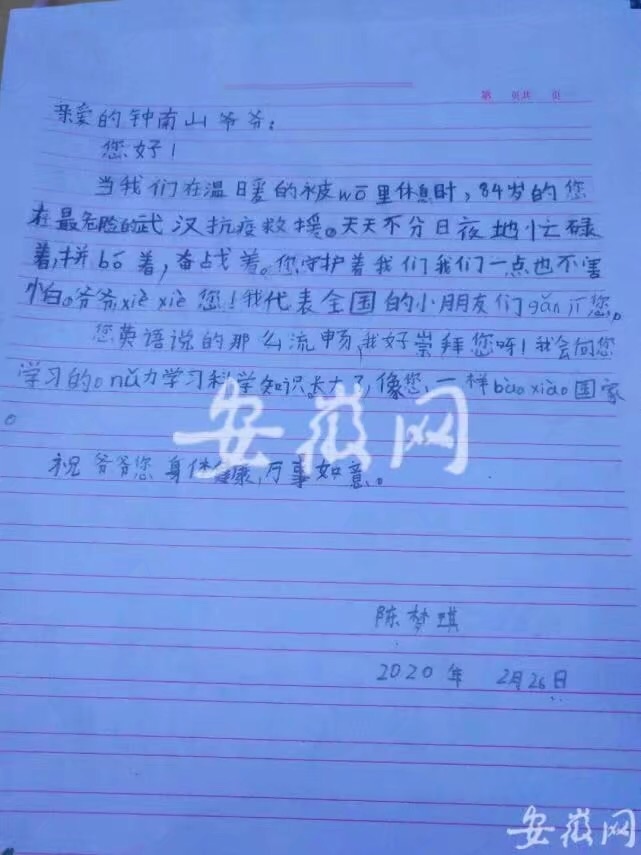 第 页共 页
亲爱的钟南山爷爷：
您好！
当我们在温暖的被wō里休息时，84岁的您
在最危险的武汉抗疫救援。天天不分日夜地忙碌
着，拼bō着，奋战着。您守护着我们我们一点也不害
怕。爷爷xiè xiè您！我代表全国的小朋友们gǎn jī您。
您英语说的那么流畅，我好崇拜您呀！我会向您
学习的。nǔ力学习科学知识。长大了，像您一样bào xiào国家
。
安徽网
祝爷爷您身体健康，万事如意。
陈梦琪
2020年 2月26日
安徽网